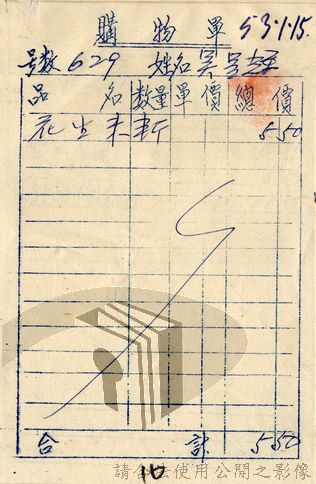 購物單 53.1.15.
号数 629 姓名 吴
品名 數量 單價 總價
花生 550
合計 550
10
請 使用公開之影像